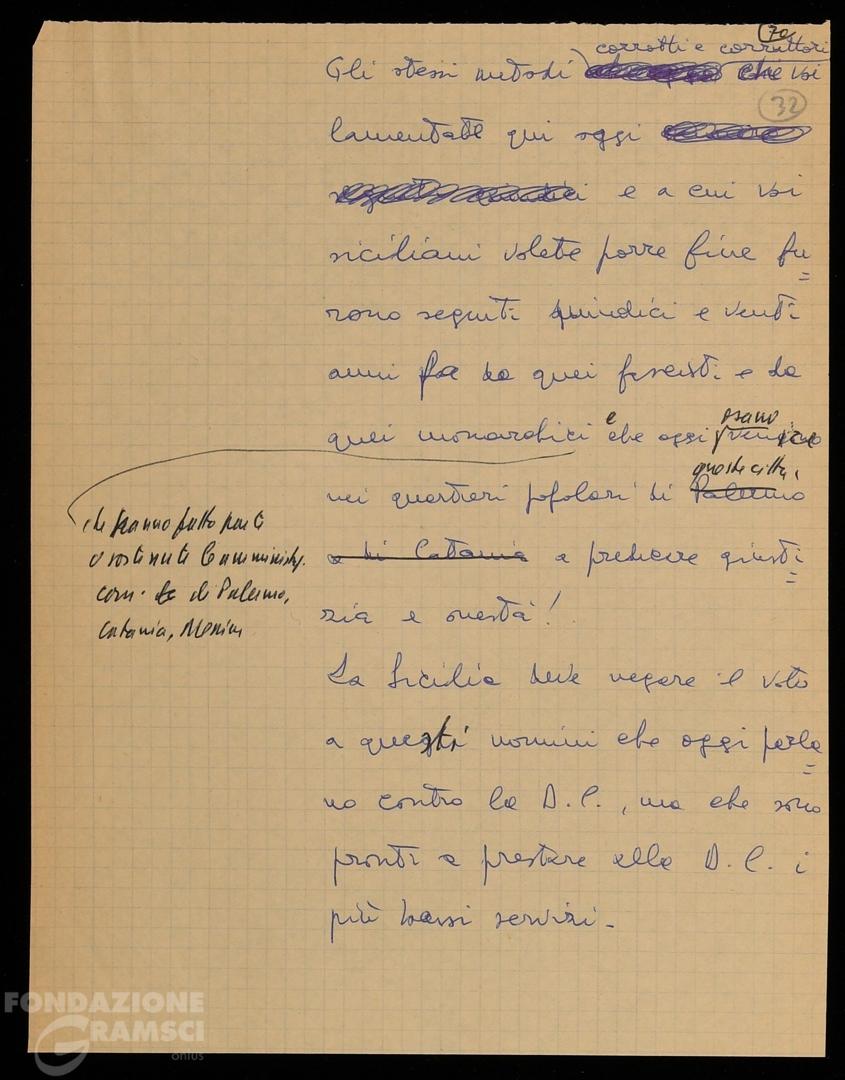 70
corrotti e corruttori
Gli stessi metodi che voi
32
lamentate qui oggi
e a cui voi
siciliani volete porre fine fu=
rono seguiti quindici e venti
anni fa da quei fascisti e da
osano
quei monarchici e che oggi
queste città,
nei quartieri popolari di Palermo
che hanno fatto parte
o sostenuto le amministr.
com. di Palermo,
Catania, Messin
e di Catania a predicare giusti=
zia e onestà!
La Sicilia deve negare il voto
a questi uomini che oggi parla=
no contro la D.C., ma che sono
pronti a prestare alla D.C. i
più bassi servizi.
FONDAZIONE
GRAMSCI
onlus